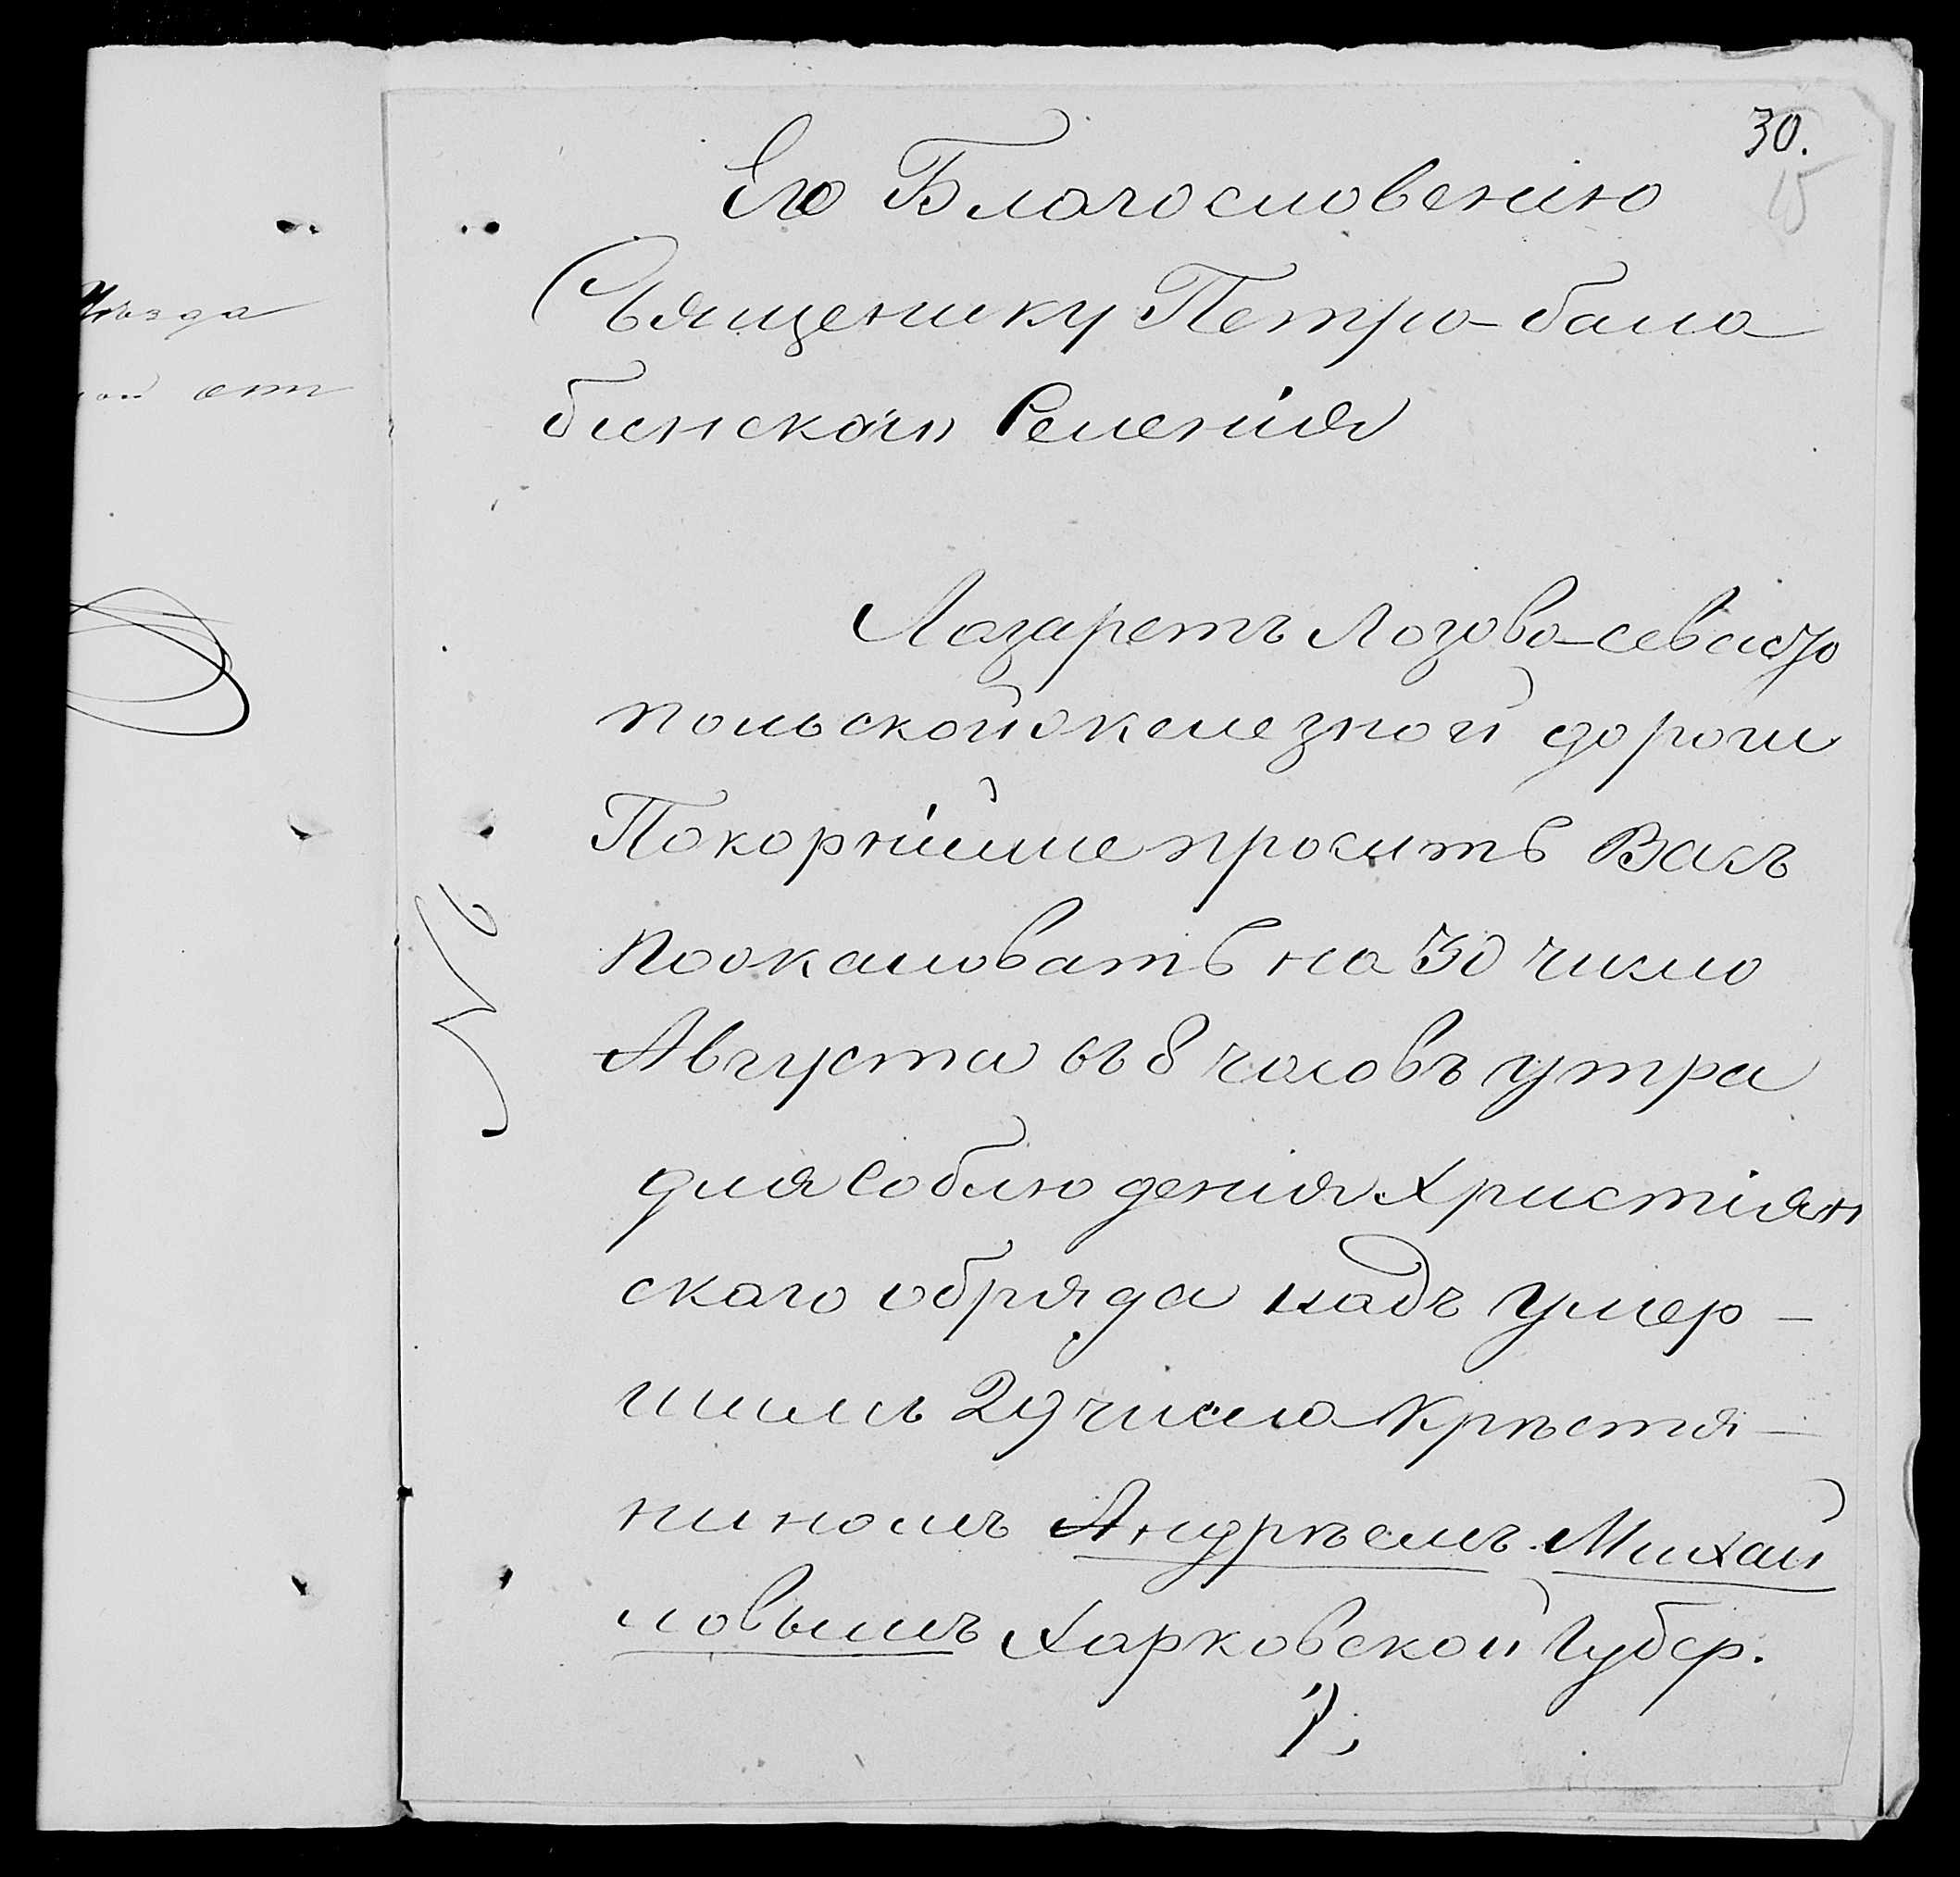 30.
15
Его Благословению
Священику Петро-бала
бинскаго Селенія
Лазаретъ Лозово-севасто
польской железной дороги
Покорнійше просить Васъ
пожаловать на 30 число
Августа въ 8 часовъ утра
для Соблюденія Христіян
скаго обряда надъ умер-
шимъ 29 числа Крѣстя-
ниномъ Андрѣемъ Михай
ловымъ Харковской Губер.
уѣзда
от